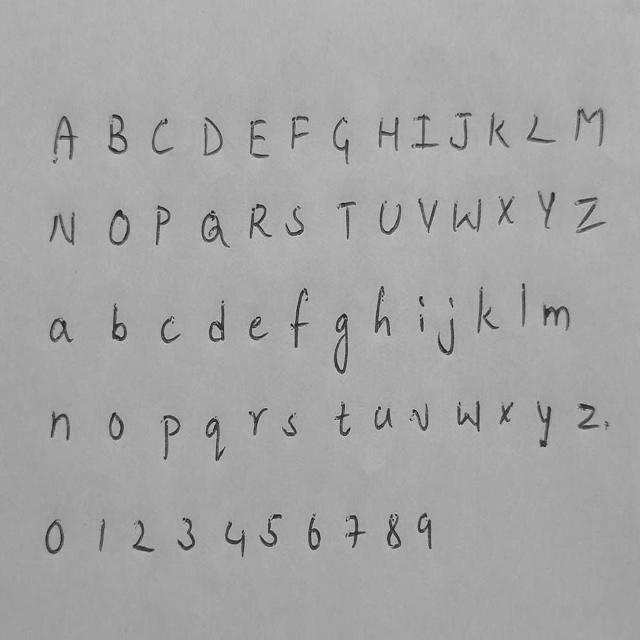 A B C D E F G H I J K L M
N O P Q R S T U V W X Y Z
a b c d e f g h i j k l m
n o p q r s t u v w x y z.
0 1 2 3 4 5 6 7 8 9